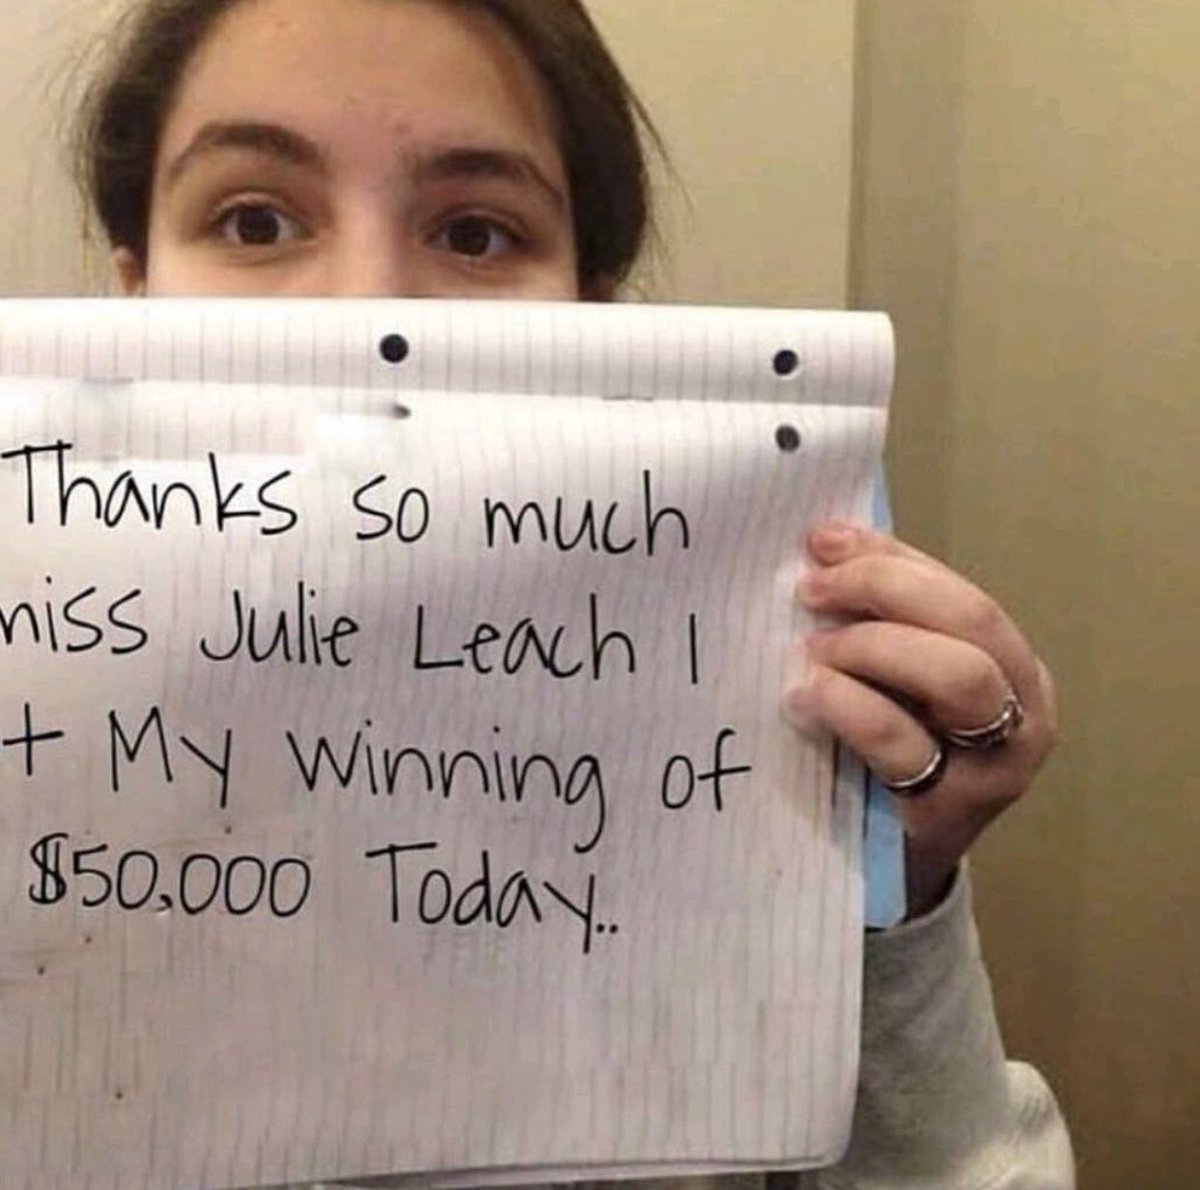 Thanks so much
miss Julie Leach I
My winning of
$50,000 Today..